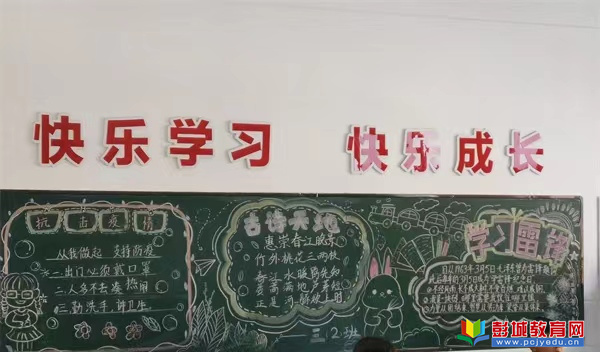 快乐学习 快乐成长
抗击疫情
从我做起 支持防疫
一出门必须戴口罩
二人多不去凑热闹
三勤洗手讲卫生
古诗天地
惠崇春江晚景
竹外桃花三两枝
春江水暖鸭先知
蒌蒿满地芦芽短
正是河豚欲上时
三2班
学习雷锋
自从1963年3月5日毛泽东
彭城教育网
www.pcjyedu.cn